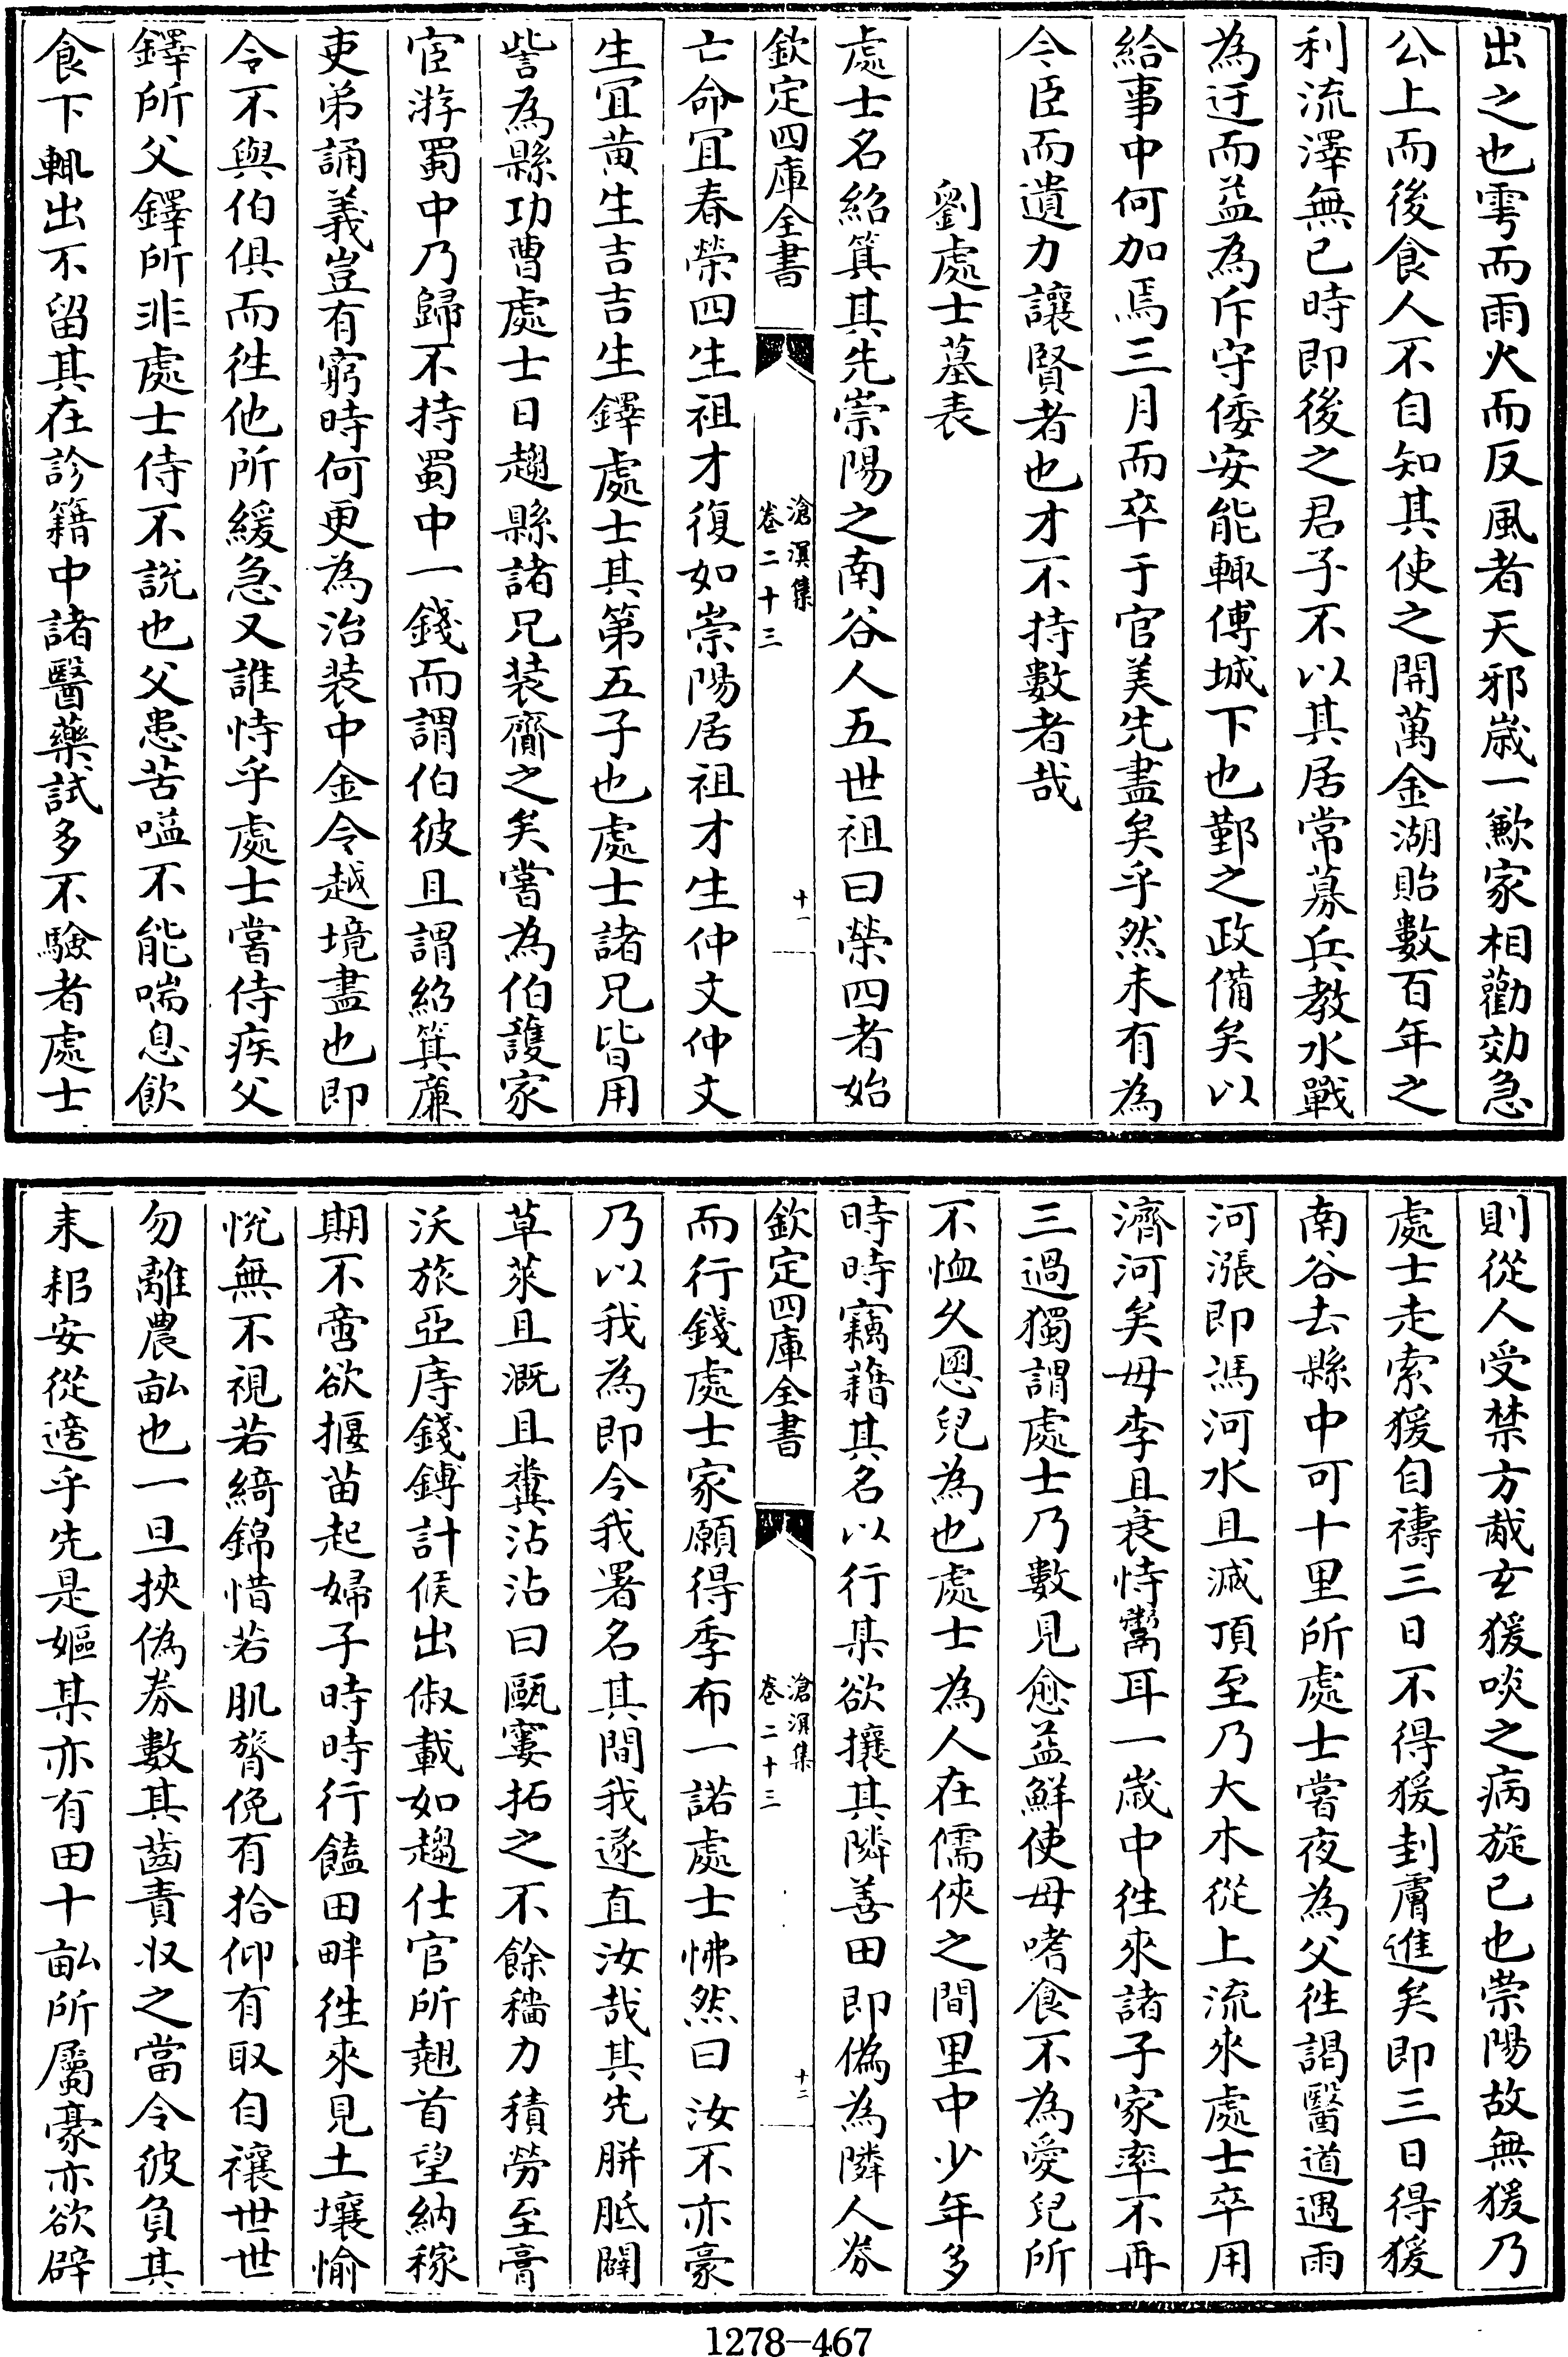 出之也雩而雨火而反風者天邪嵗一歉家相勸効急
公上而後食人不自知其使之開萬金湖貽數百年之
利流澤無已時即後之君子不以其居常募兵教水戰
為迂而益為斥守倭安能輙傅城下也鄞之政備矣以
給事中何加焉三月而卒于官美先盡矣乎然未有為
令臣而遺力讓賢者也才不持數者哉
劉處士墓表
處士名紹箕其先崇陽之南谷人五世祖曰榮四者始
欽定四庫全書
滄溟集
卷二十三
十一
亡命冝春榮四生祖才復如崇陽居祖才生仲文仲文
生冝黄生吉吉生鐸處士其第五子也處士諸兄皆用
訾為縣功曹處士日趨縣諸兄装齎之矣嘗為伯護家
宦游蜀中乃歸不持蜀中一錢而謂伯彼且謂紹箕廉
吏弟誦義豈有窮時何更為治装中金令越境盡也即
令不與伯俱而徃他所緩急又誰恃乎處士嘗侍疾父
鐸所父鐸所非處士侍不說也父患苦嗌不能喘息飲
食下輙出不留其在診籍中諸醫藥試多不驗者處士
則從人受禁方胾玄猨啖之病旋已也崇陽故無猨乃
處士走索猨自禱三日不得猨刲膚進矣即三日得猨
南谷去縣中可十里所處士嘗夜為父徃謁醫道遇雨
河漲即馮河水且滅頂至乃大木從上流來處士卒用
濟河矣母李且衰恃鬻耳一嵗中徃來諸子家率不再
三過獨謂處士乃數見愈益鮮使母嗜食不為愛兒所
不恤久慁兒為也處士為人在儒俠之間里中少年多
時時竊藉其名以行某欲攘其隣善田即偽為隣人券
欽定四庫全書
滄溟集
卷二十三
十二
而行錢處士家願得季布一諾處士怫然曰汝不亦豪
乃以我為即令我署名其間我遂直汝哉其先胼胝闢
草萊且溉且糞沾沾曰甌窶拓之不餘穡力積勞至膏
沃旅亞庤錢鎛計候出俶載如趨仕官所翹首望納稼
期不啻欲揠苗起婦子時時行饁田畔徃來見土壤愉
悅無不視若綺錦惜若肌膂俛有拾仰有取自禳世世
勿離農畝也一旦挾偽券數其齒責収之當令彼負其
耒耜安從適乎先是嫗某亦有田十畝所屬豪亦欲辟
1278-467